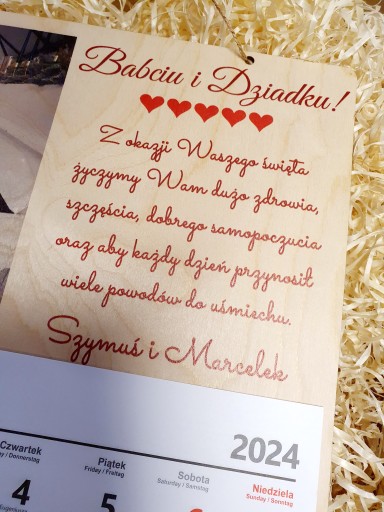 Babciu i Dziadku!
Z okazji Waszego święta
życzymy Wam dużo zdrowia,
szczęścia, dobrego samopoczucia
oraz aby każdy dzień przynosił
wiele powodów do uśmiechu.
Szymuś i Marcelek
2024
Czwartek Piątek Sobota Niedziela
Friday / Freitag Saturday / Samstag Sunday / Sonntag
4 5